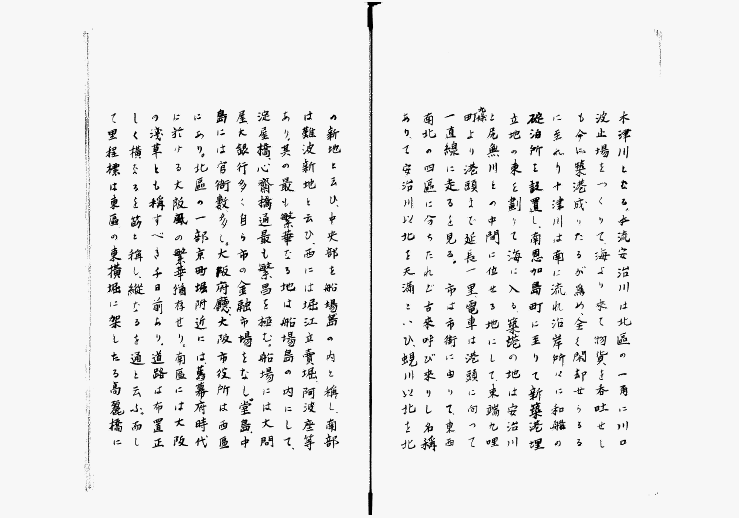 木津川となる。本流安治川は北區の一角に川口
波止場をつくりて、海より来て物貨を呑吐せし
も今は築港成りたるが為め全く閑却せらるゝ
に至れり木津川は南に流れ沿岸所々に和船の
碇泊所を設置し、南恩加島町に至りて新築港埋
立地の東を劃りて海に入る築港の地は安治川
と尻無川との中間に位せる地にして、東端九條
町より港頭まで延長一里電車は港頭に向つて
一直線に走るを見る。市は市街に由りて、東西
南北の四區に分ちたれど古来呼び来りし名稱
ありて安治川以北を天満といひ、蜆川以北を北
の新地と云ひ、中央部を船場島の内と稱し、南部
は難波新地と云ひ、西には堀江立賣堀、阿波座等
あり、其の最も繁華なる地は船場島の内にして、
淀屋橋、心齋橋通最も繁昌を極む。船場には大問
屋大銀行多く自ら市の金融市場をなし、堂島、中
島には官衙數多し。大阪府廳、大阪市役所は西區
にあり。北區の一部京町堀附近には舊幕府時代
に於ける大阪風の繁華猶存せり。南區には大阪
の淺草とも稱すべき千日前あり。道路は布置正
しく横なるを筋と稱し、縦なるを通と云ふ。而し
て里程標は東區の東横堀に架したる高麗橋に